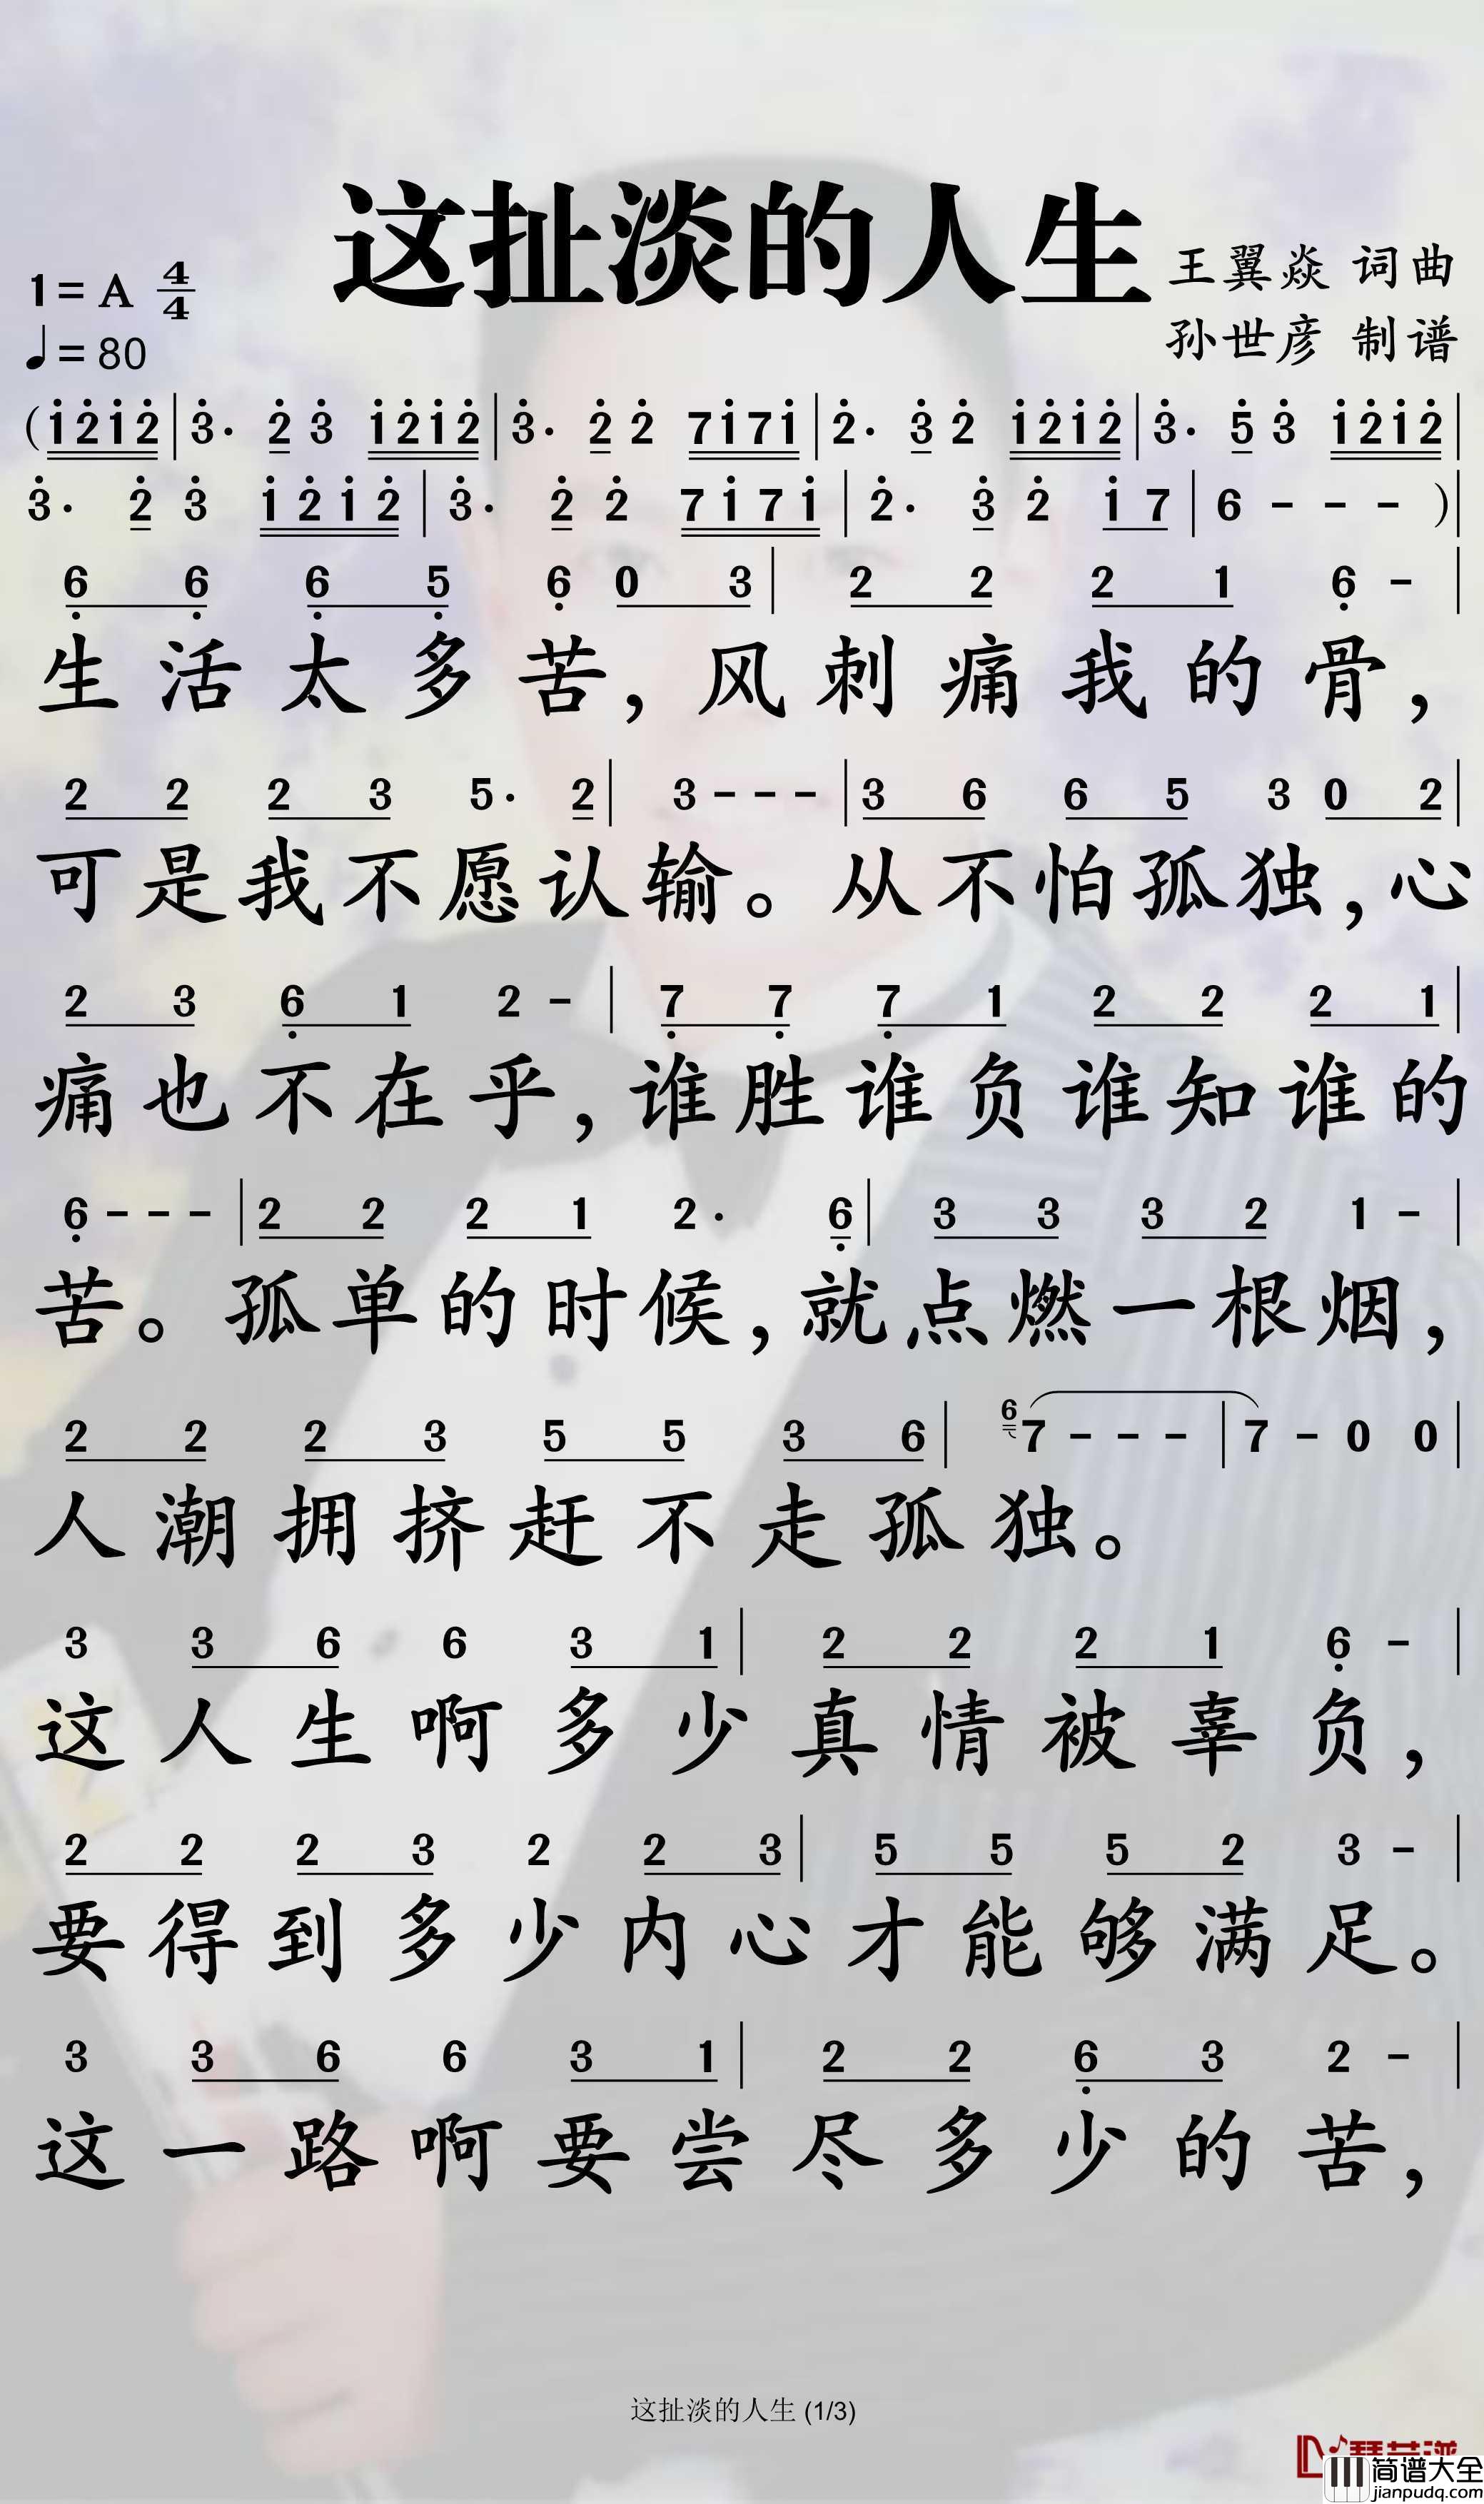 这扯淡的人生
王翼焱 词曲
1=A 4/4
孙世彦 制谱
♩=80
(i̇2̇i̇2̇|3̇· 2̇ 3̇ i̇2̇i̇2̇|3̇· 2̇ 2̇ 7i̇7i̇|2̇· 3̇ 2̇ i̇2̇i̇2̇|3̇· 5̇ 3̇ i̇2̇i̇2̇|
3̇· 2̇ 3̇ i̇2̇i̇2̇|3̇· 2̇ 2̇ 7i̇7i̇|2̇· 3̇ 2̇ i̇7|6 - - - )|
6̣ 6̣ 6̣ 5̣ 6̣ 0 3|2 2 2 1 6̣ -|
生活太多苦,风刺痛我的骨,
2 2 2 3 5· 2|3 - - -|3 6 6 5 3 0 2|
可是我不愿认输。从不怕孤独,心
2 3 6̣ 1 2 -|7̣ 7̣ 7̣ 1 2 2 2 1|
痛也不在乎,谁胜谁负谁知谁的
6̣ - - -|2 2 2 1 2· 6̣|3 3 3 2 1 -|
苦。孤单的时候,就点燃一根烟,
2 2 2 3 5 5 3 6|6 7 - - -|7 - 0 0|
人潮拥挤赶不走孤独。
3 3 6 6 3 1|2 2 2 1 6̣ -|
这人生啊多少真情被辜负,
2 2 2 3 2 2 3|5 5 5 2 3 -|
要得到多少内心才能够满足。
3 3 6 6 3 1|2 2 6̣ 3 2 -|
这一路啊要尝尽多少的苦,
这扯淡的人生 (1/3)
简谱大全
jianpudq.com